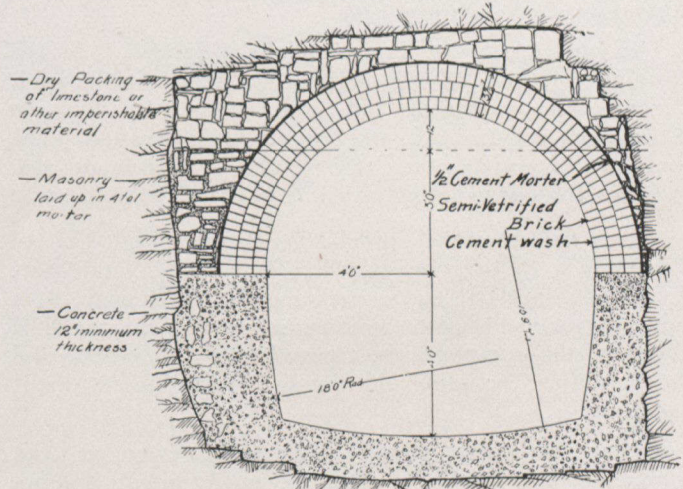 Dry Packing
of limestone or
other imperishable
material
Masonry
laid up in 4 to 1
mortar
Concrete
12" minimum
thickness
1/2" Cement Morter
Semi-Vetrified
Brick
Cement wash
4'0"
18'0" Rad